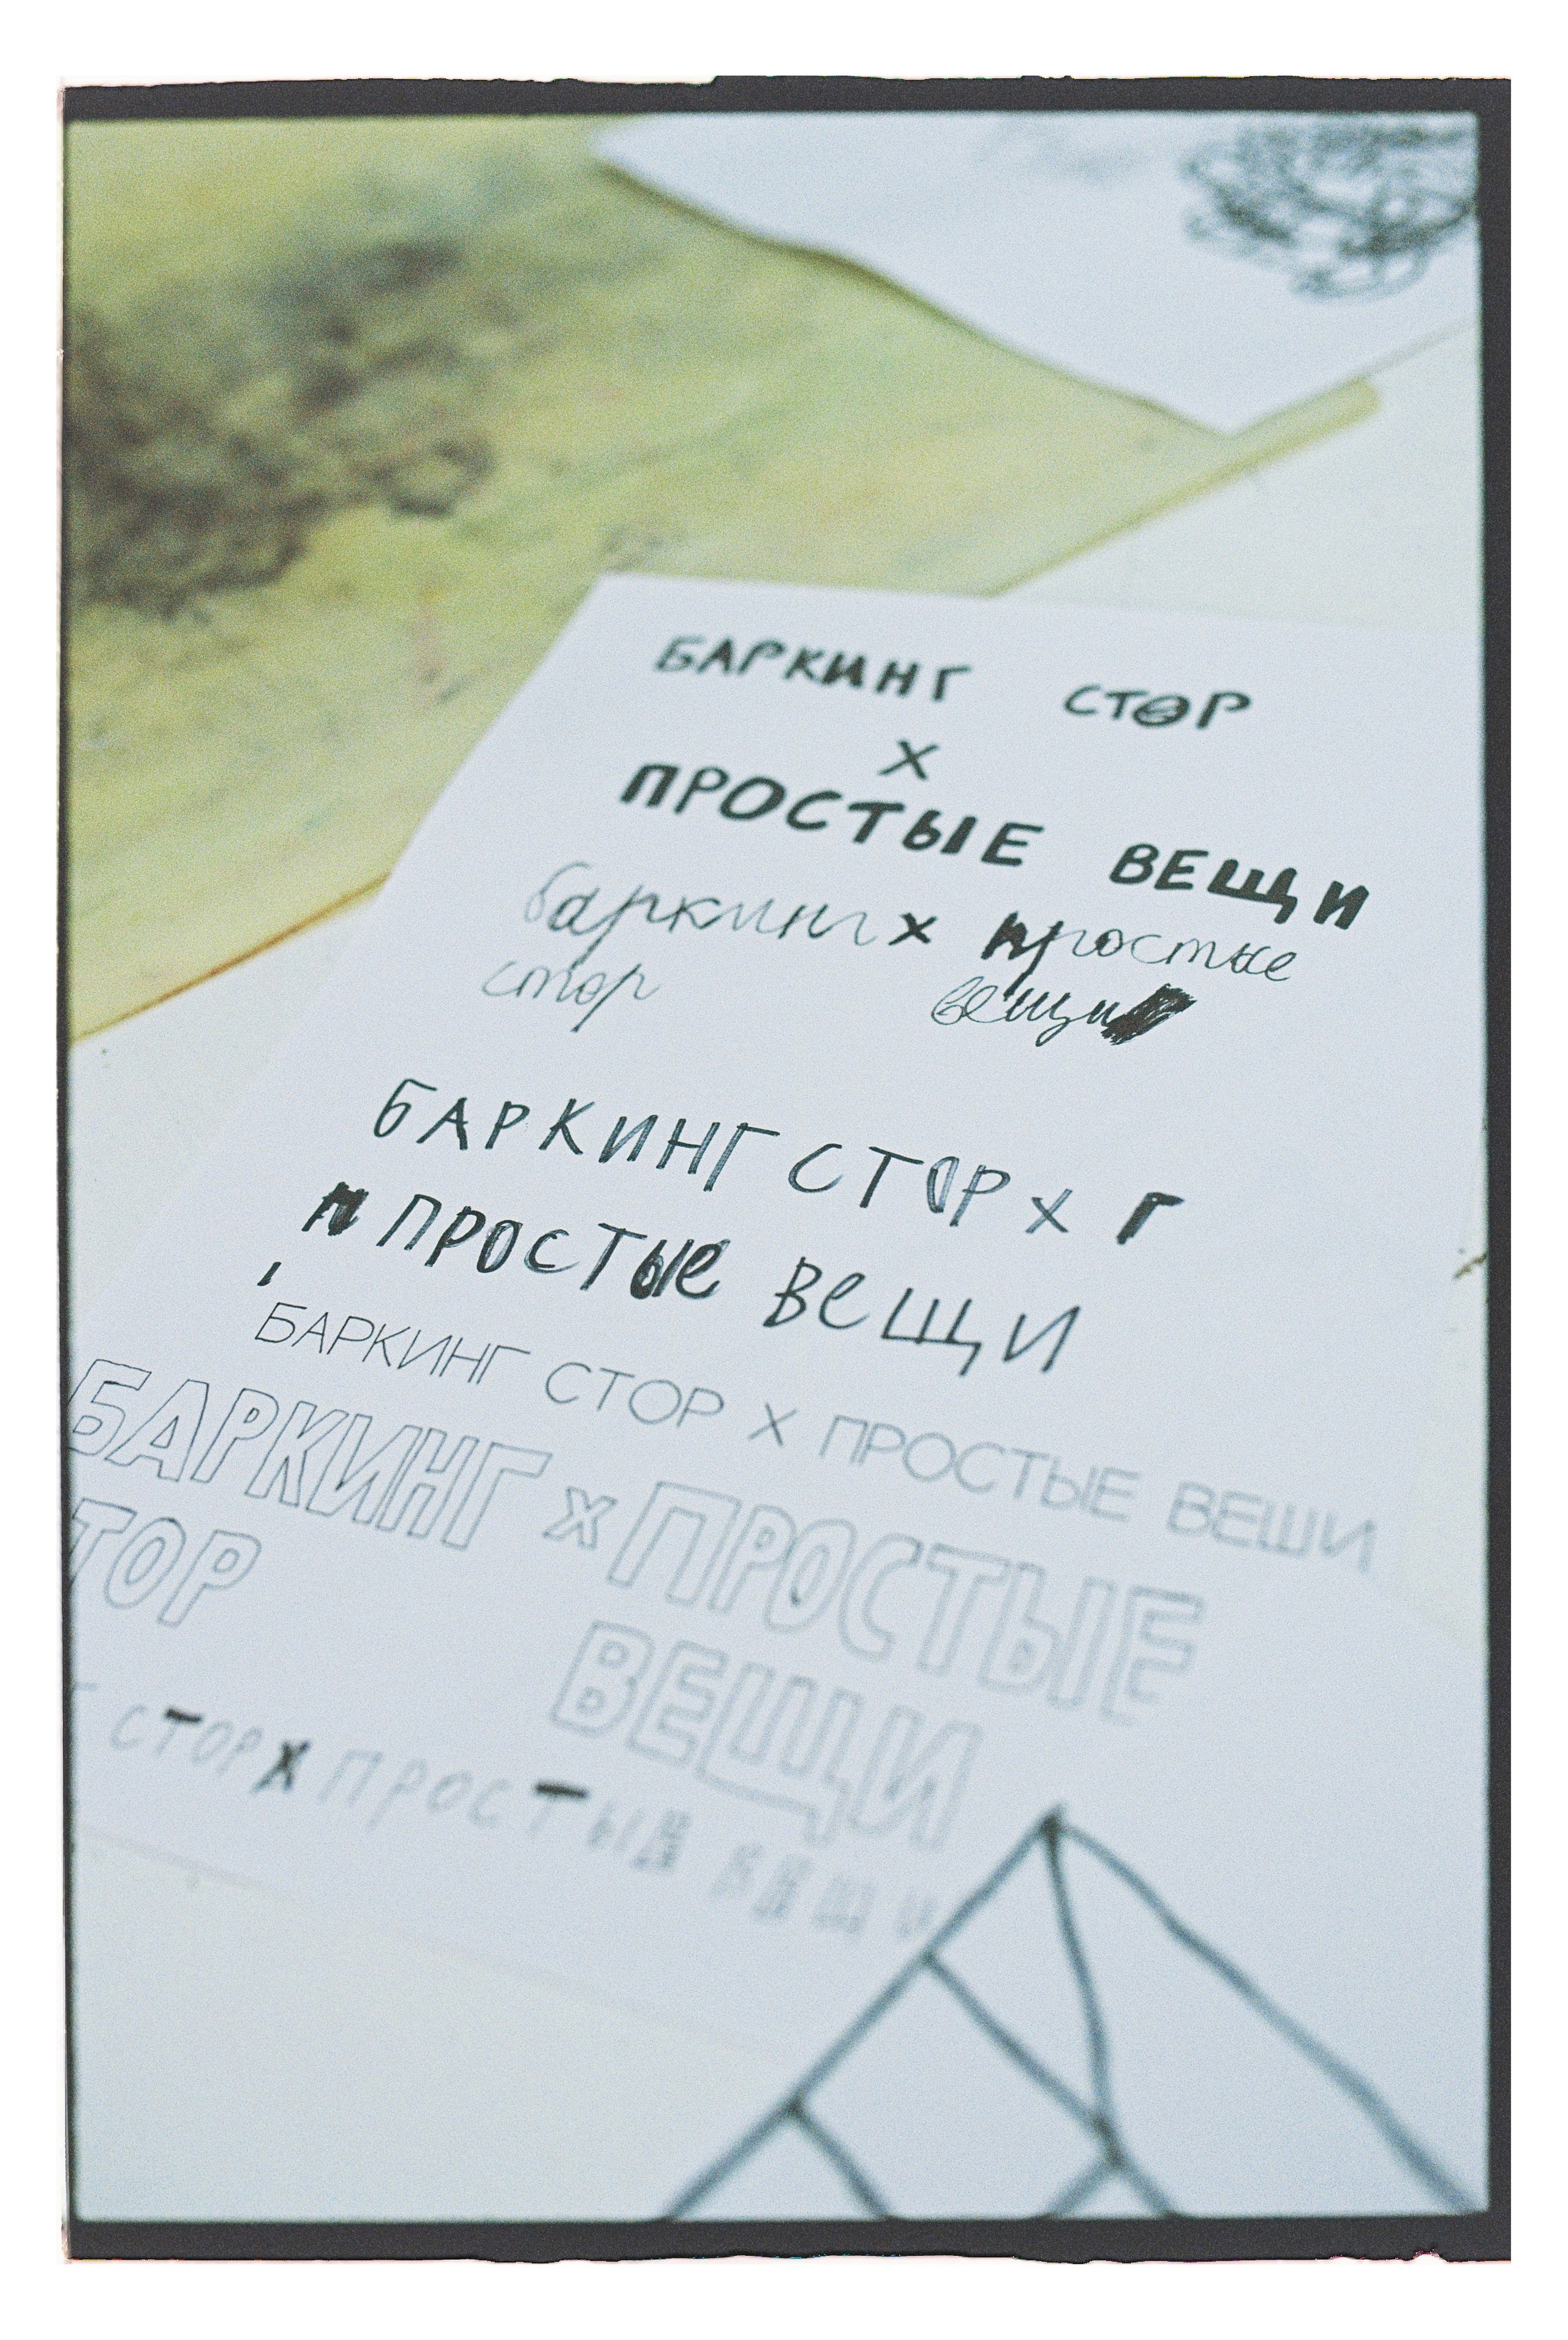 БАРКИНГ СТОР
X
ПРОСТЫЕ ВЕЩИ
баркинг x простые
стор вещи
БАРКИНГ СТОР X Г
П ПРОСТЫЕ ВЕЩИ
БАРКИНГ СТОР X ПРОСТЫЕ ВЕЩИ
БАРКИНГ X ПРОСТЫЕ
ТОР ВЕЩИ
СТОР X ПРОСТЫЕ ВЕЩИ